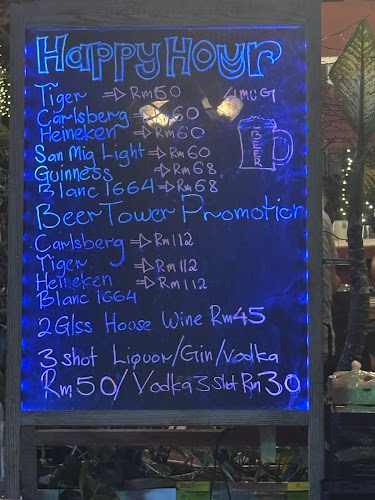 Happy Hour
Tiger → Rm60 4 MUG
Carlsberg → 60
Heineken → Rm60
San Mig Light → Rm60
Guinness → Rm68
Blanc 1664 → Rm68
BEER
Beer Tower Promotion
Carlsberg → Rm112
Tiger → Rm112
Heineken → Rm112
Blanc 1664
2 Glss House Wine Rm45
3 shot Liquor/Gin/Vodka
Rm50/Vodka 3 Shot Rm30